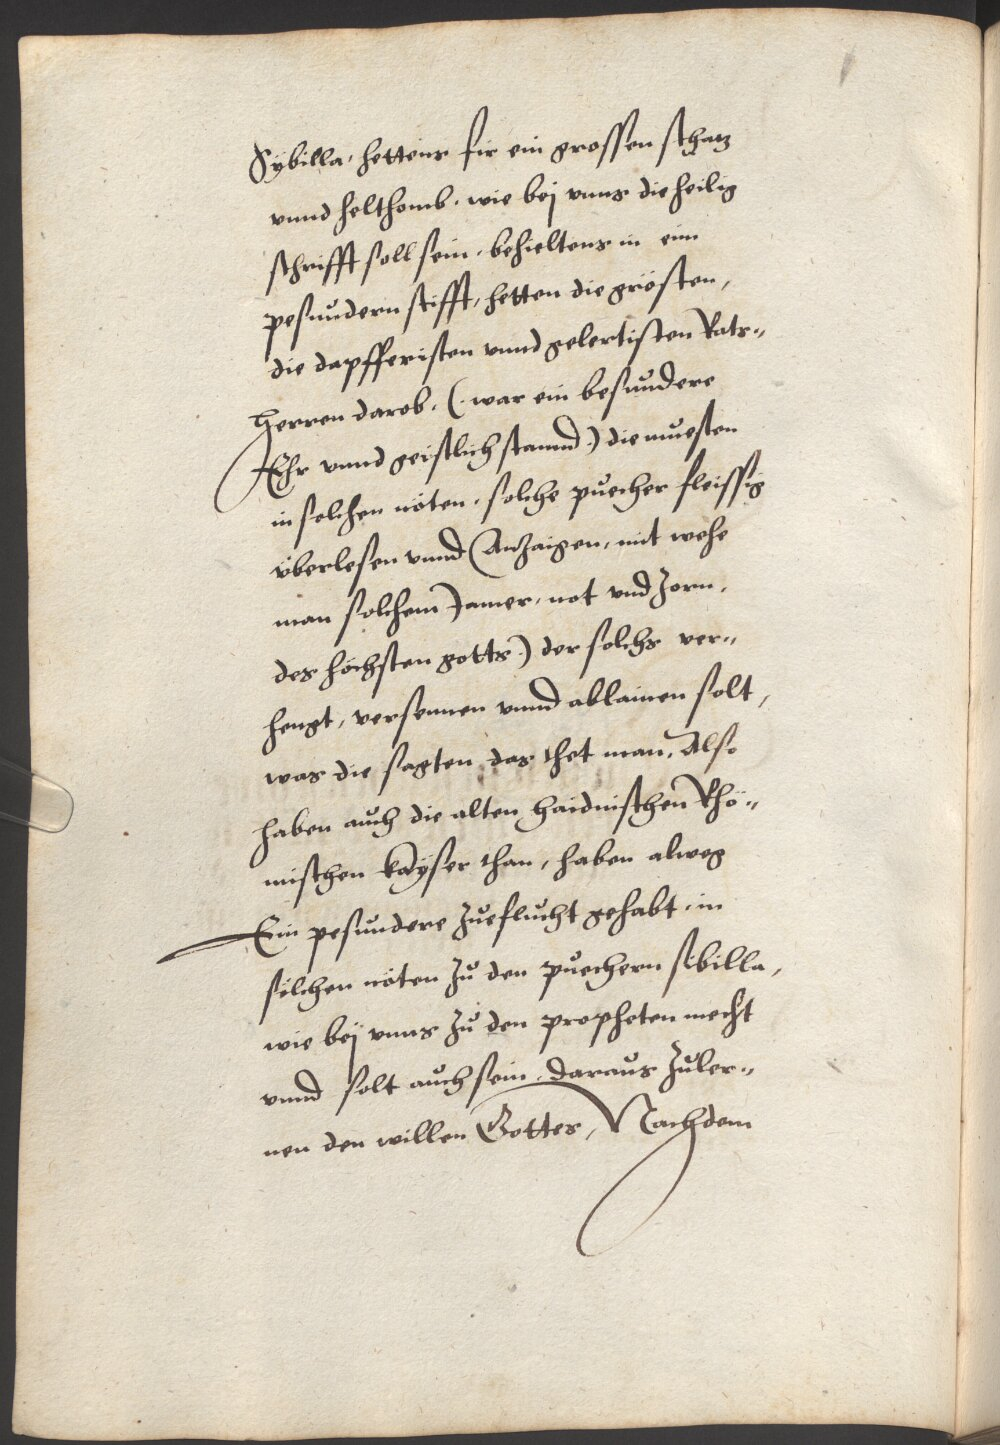 Sÿbilla, hettens fir ein grossen schatz
vnnd helthomb. wie bej vnns die heilig
schrifft soll sein. behieltens in eim
pesundern stifft, hetten die grösten,
die dapfferisten vnnd gelertisten Rats-
herren darob. (war ein besundere
Ehr vnnd geistlich stannd) die muesten
in solchen nöten. solche puecher fleissig
vberlesen vnnd Anzaigen, mit wehe
man solchem Jamer, not vnd Zorn,
des höchsten gotts) der solchs ver-
hengt, versennen vnnd ablainen solt,
was die sagten, das thet man, Also
haben auch die alten haidnischen Rhö-
mischen kaÿser than, haben alweg
Ein pesundere Zueflucht gehabt in
solchen nöten Zu den puechern sibilla,
wie bej vnns Zu den propheten mecht
vnnd solt auch sein. daraus Zuler-
nen den willen Gottes, Nachdem